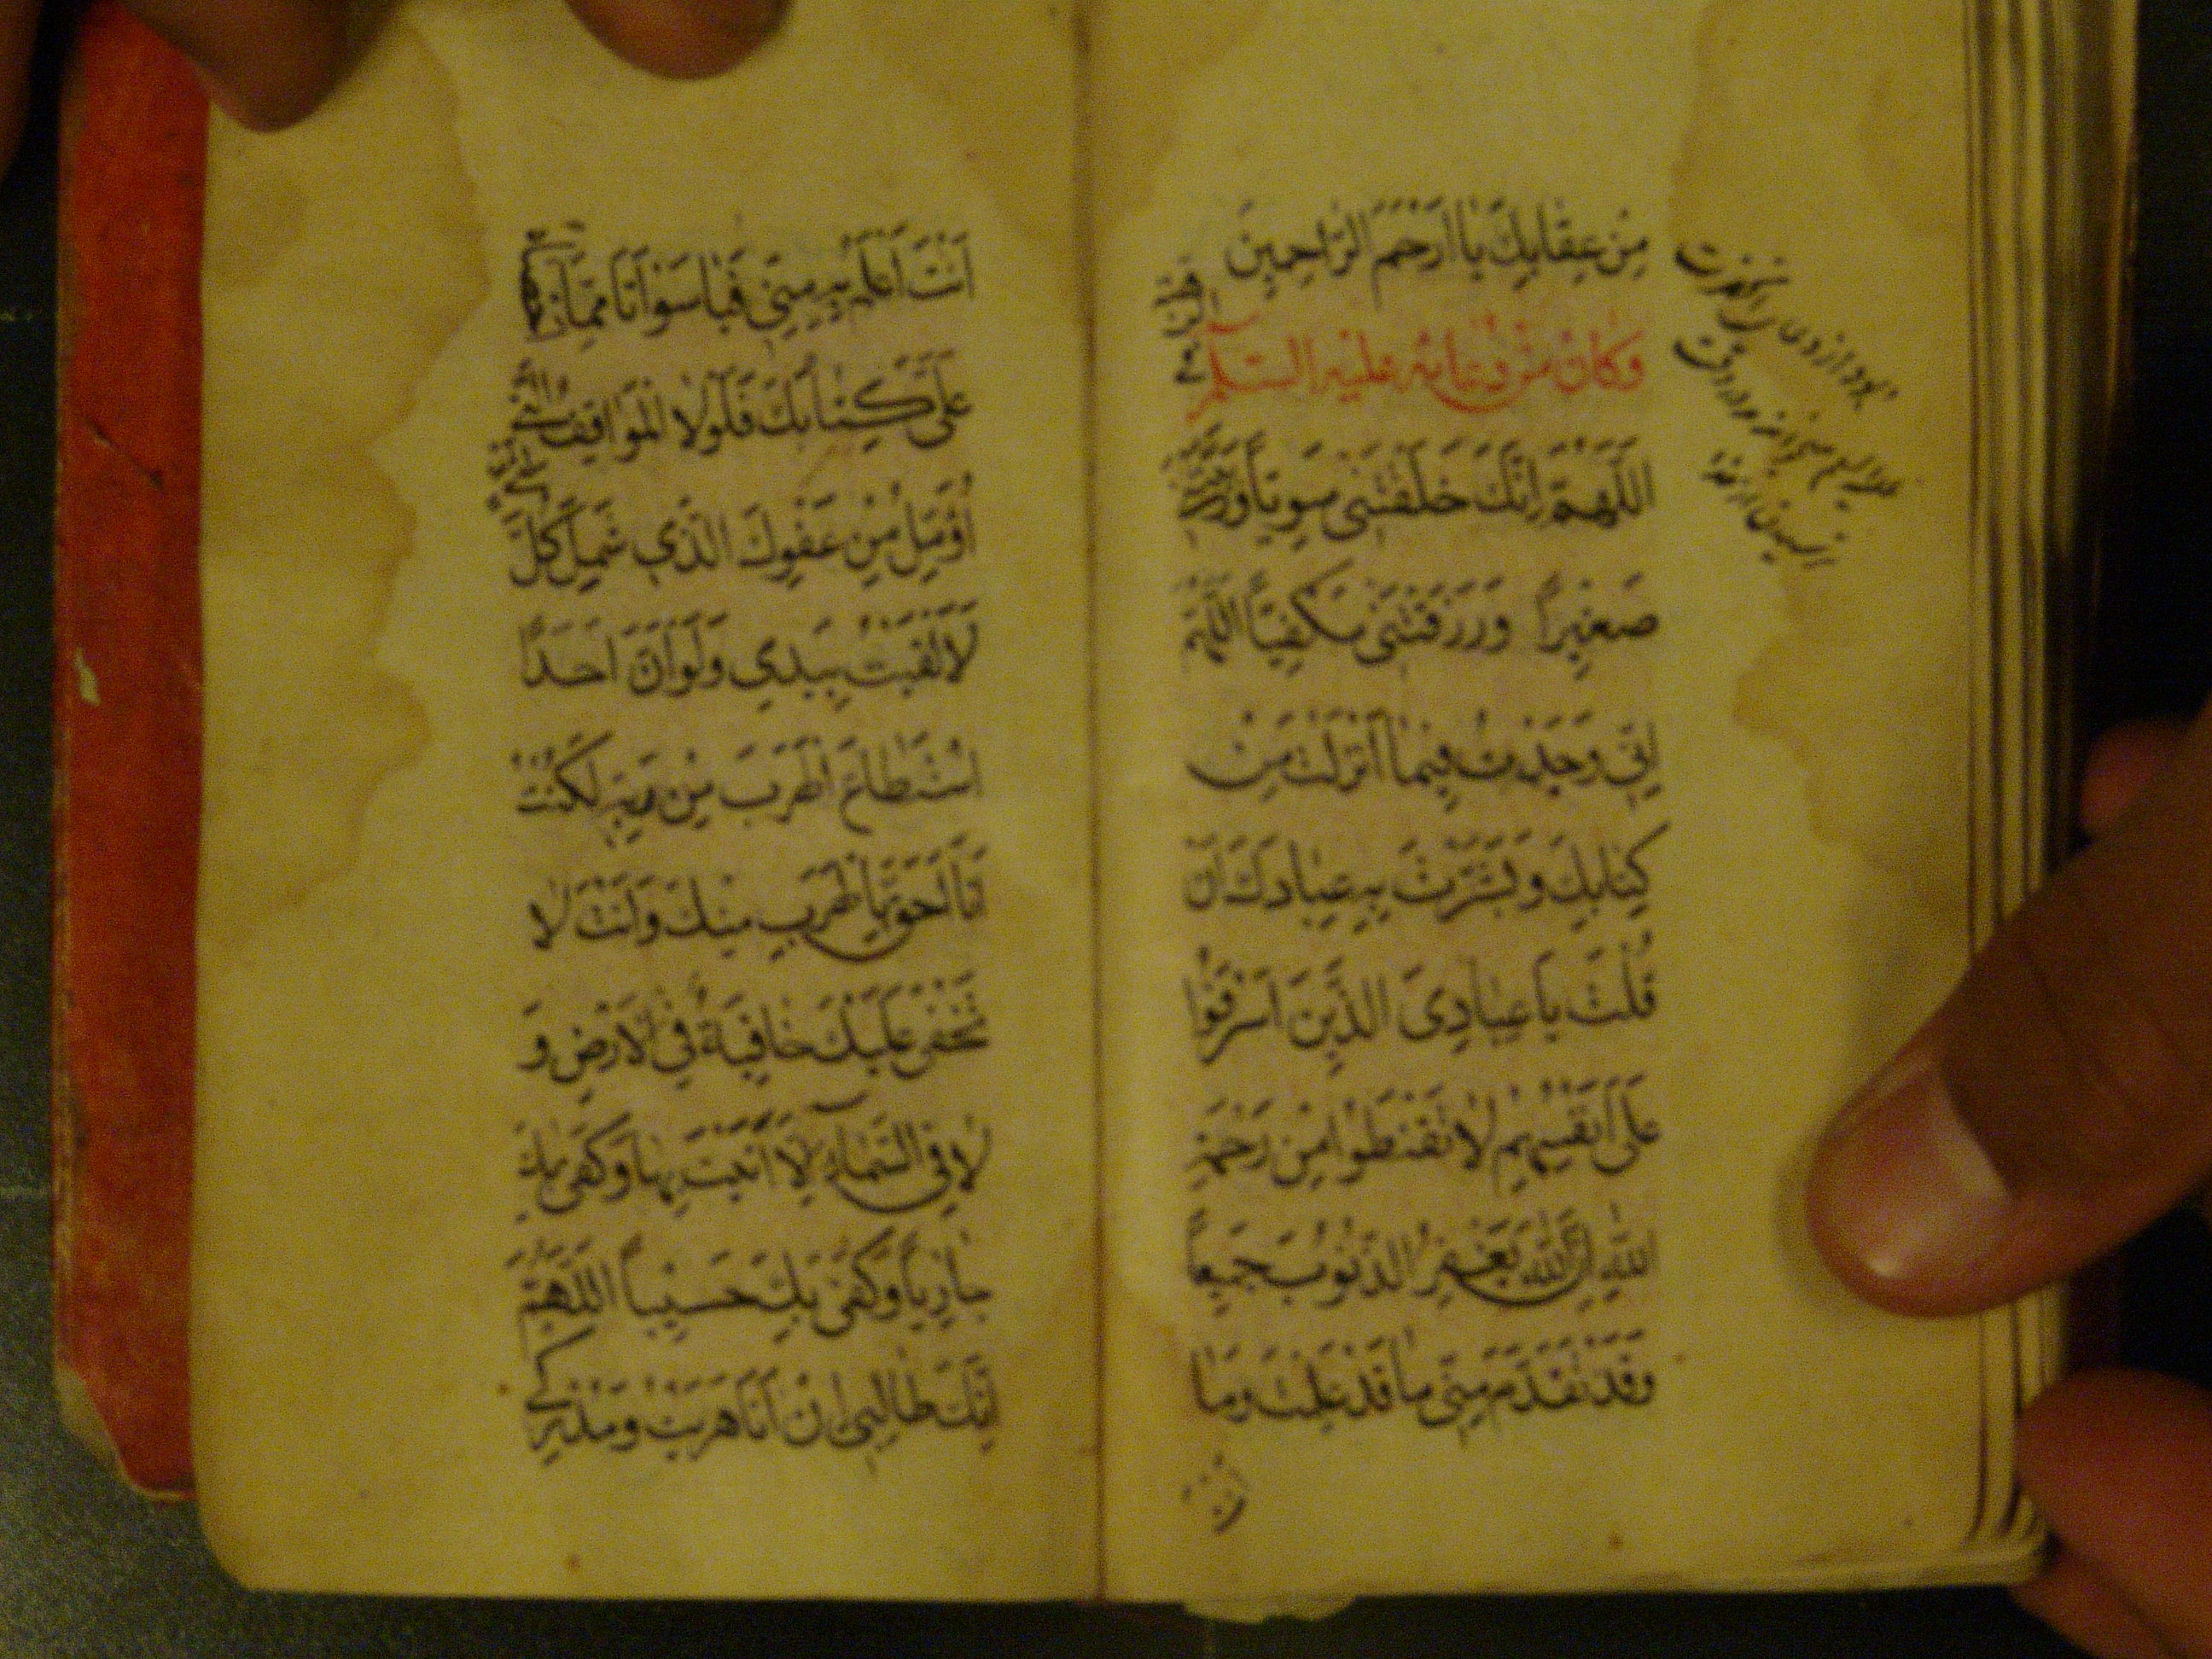 مِنْ عِقَابِكَ يَا أَرْحَمَ الرَّاحِمِينَ
وَكَانَ مِنْ دُعَائِهِ عَلَيْهِ السَّلَامُ
اللَّهُمَّ إِنَّكَ خَلَقْتَنِي سَوِيّاً وَرَبَّيْتَنِي
صَغِيراً وَرَزَقْتَنِي مَكْفِيّاً اللَّهُمَّ
إِنِّي وَجَدْتُ فِيمَا أَنْزَلْتَ مِنْ
كِتَابِكَ وَبَشَّرْتَ بِهِ عِبَادَكَ أَنْ
قُلْتَ يَا عِبَادِيَ الَّذِينَ أَسْرَفُوا
عَلَى أَنْفُسِهِمْ لَا تَقْنَطُوا مِنْ رَحْمَةِ
اللهِ إِنَّ اللهَ يَغْفِرُ الذُّنُوبَ جَمِيعاً
وَقَدْ تَقَدَّمَ مِنِّي مَا قَدْ عَلِمْتَ وَمَا
أَنْتَ أَعْلَمُ بِهِ مِنِّي فَيَا سَوْأَتَا مِمَّا
عَلَيَّ كِتَابُكَ فَلَوْلَا الْمَوَاقِفُ الَّتِي
أُؤَمِّلُ مِنْ عَفْوِكَ الَّذِي شَمِلَ كُلَّ
لَأَلْقَيْتُ بِيَدِي وَلَوْ أَنَّ أَحَداً
اسْتَطَاعَ الْهَرَبَ مِنْ رَبِّهِ لَكُنْتُ
أَنَا أَحَقَّ بِالْهَرَبِ مِنْكَ وَأَنْتَ لَا
تَخْفَى عَلَيْكَ خَافِيَةٌ فِي الْأَرْضِ وَ
لَا فِي السَّمَاءِ إِلَّا أَتَيْتَ بِهَا وَكَفَى بِكَ
جَازِياً وَكَفَى بِكَ حَسِيباً اللَّهُمَّ
إِنَّكَ طَالِبِي إِنْ أَنَا هَرَبْتُ وَمُدْرِكِي